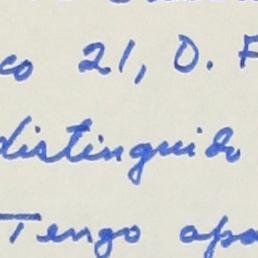 co 21, D. F
distinguido
Tengo apa